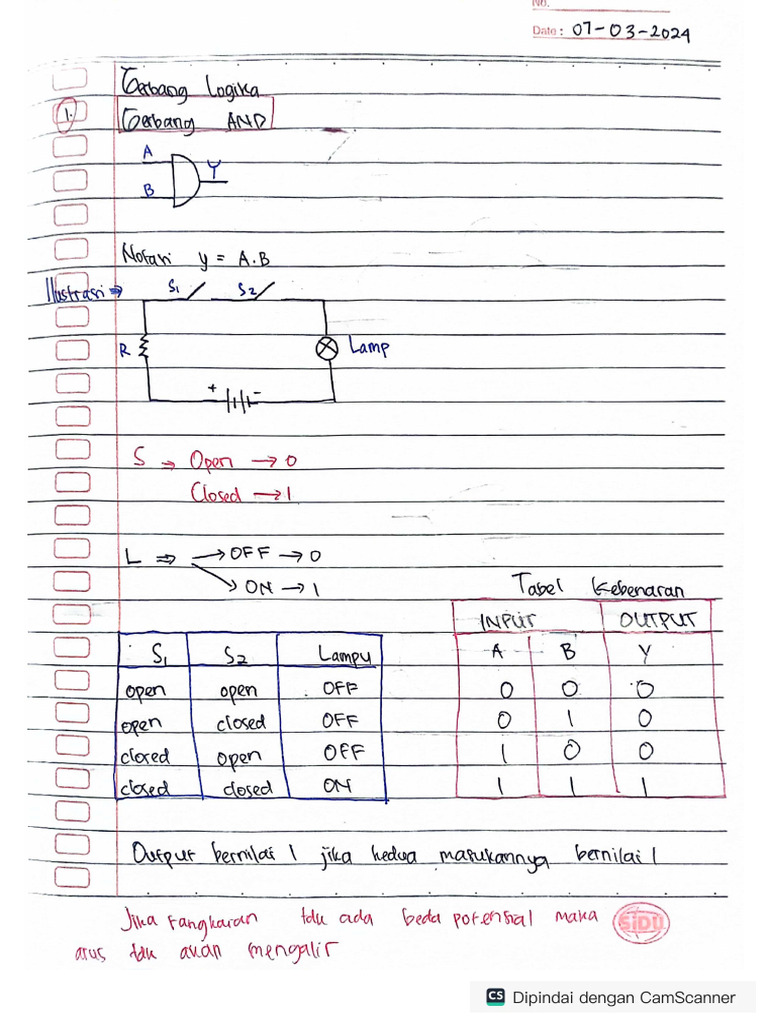 No.
Date : 07-03-2024
Gerbang Logika
1. Gerbang AND
A
Y
B
Notasi y = A.B
Ilustrasi ⇒ S1 S2
R Lamp
+ -
S → Open → 0
Closed → 1
L ⇒ → OFF → 0
→ ON → 1
Tabel Kebenaran
INPUT OUTPUT
S1 S2 Lampu
A B Y
open open OFF
0 0 0
open closed OFF
0 1 0
closed open OFF
1 0 0
closed closed ON
1 1 1
Output bernilai 1 jika kedua masukannya bernilai 1
Jika rangkaian tdk ada beda potensial maka
SiDU
arus tdk akan mengalir
CS Dipindai dengan CamScanner